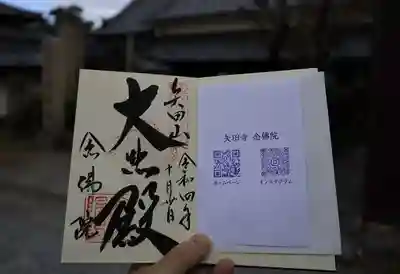 矢田山
令和四年
十月廿日
大悲殿
念佛院
矢田寺 念佛院
ホームページ
インスタグラム